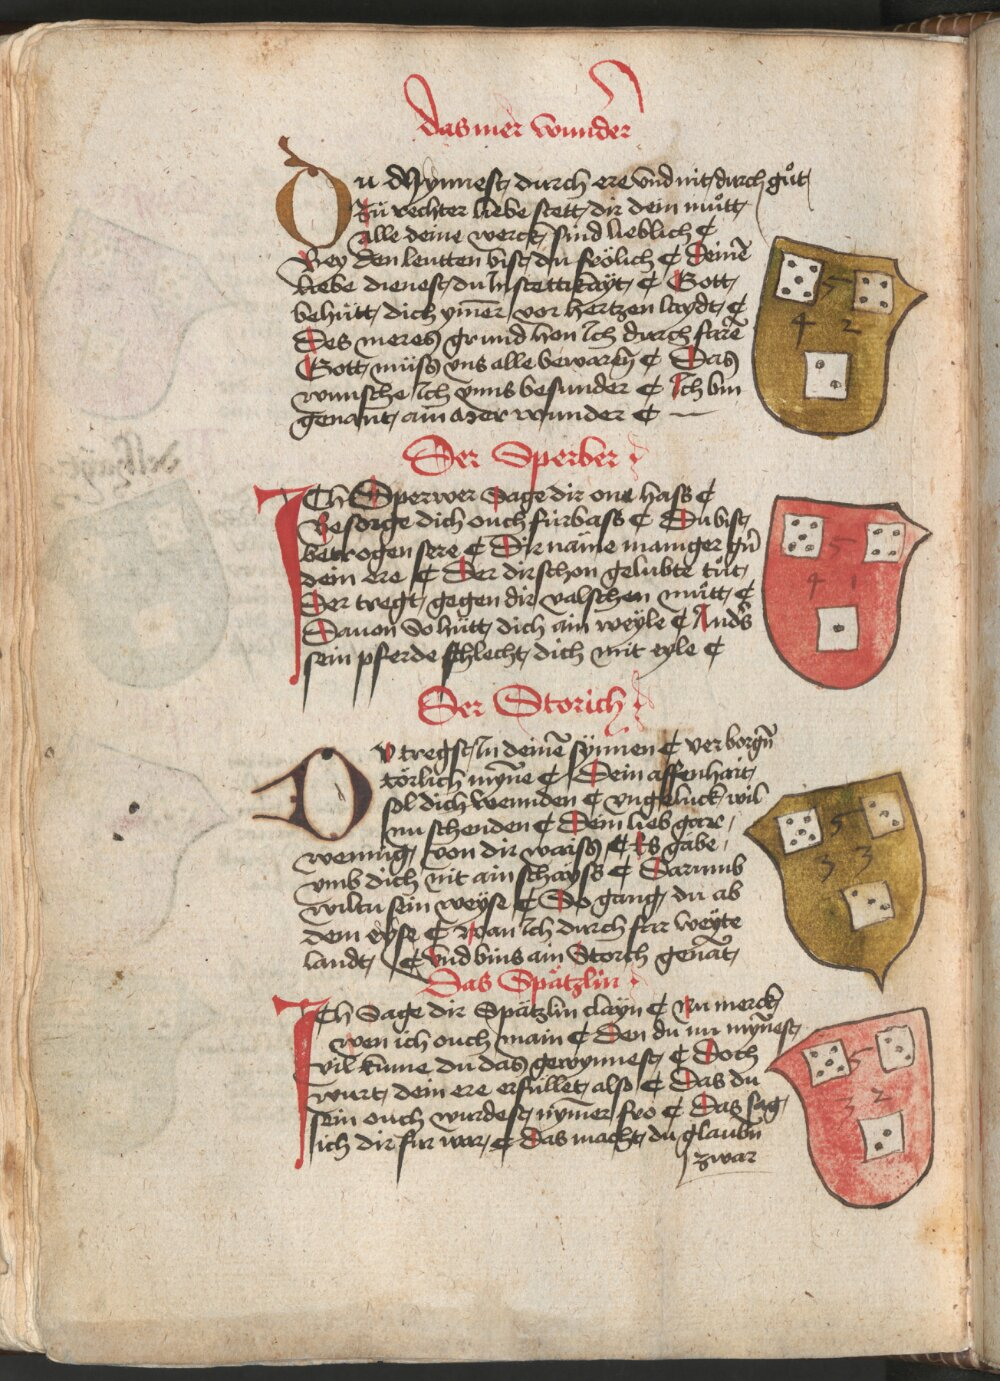 Das mer wunder
Du Mynnest durch ere vnd nit durch gůt
Zů rechter liebe stett dir dein můtt
Alle deine werck sind lieblich ¢
Bey den leutten bist du frölich ¢ Deinē
liebe dienest du In stettikayt ¢ Gott
behütt dich ym̄er vor hertzen laydt ¢
Des meres grund hen Ich durch farē
Gott müss vns alle bewaren ¢ Das
wunsche Ich vnns besunder ¢ Ich bin
genant ain Mer wunder ¢
Der Sperber
ICh Sperwer Sage dir one hass ¢
Besorge dich ouch fürbass ¢ Du bist
betrogen sere ¢ Dir näme maniger gn̄
dein ere ¢ Der dir schon gelübte tůt
Der tregt gegen dir valschen můtt ¢
Dauon So hütt dich ain weyle ¢ Anders
sein pferde schlecht dich mit eyle ¢
Der Storich
DV tregst In deinē synnen ¢ verborgn̄
törlich myn̄e ¢ Dein affenhait
sol dich wennden ¢ vngelück wil
nu schenden ¢ Dein lieb gar
wennig von dir waiss ¢ Es gäbe
vmb dich nit ain schayss ¢ Darumb
wiltu sein weyse ¢ So gang du ab
dem eyse ¢ Wan Ich durch far weyte
landt ¢ Vnd bins ain Storch genāt
Das Spätzlin
ICh Sage dir Spätzlin clayn ¢ Nu merck
wen ich ouch main ¢ Den du nu myn̄est
vil kume du das gewynnest ¢ Doch
wurt dein ere erfüllet also ¢ Das du
sein ouch wurdest nym̄er fro ¢ Das sag
ich dir für war ¢ Das macht du glaubn̄
zwar
5
4 2
5
4 1
5
3 3
5
3 2